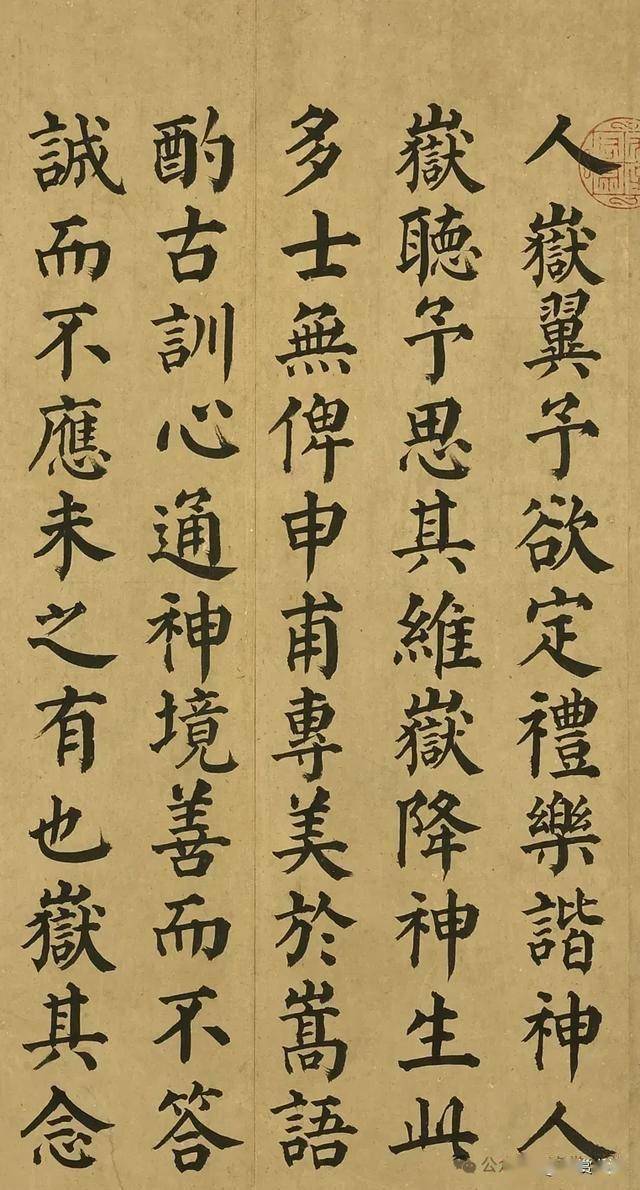 人嶽翼予欲定禮樂諧神人
嶽聽予思其維嶽降神生此
多士無俾申甫專美於嵩語
酌古訓心通神境善而不答
誠而不應未之有也嶽其念
公众